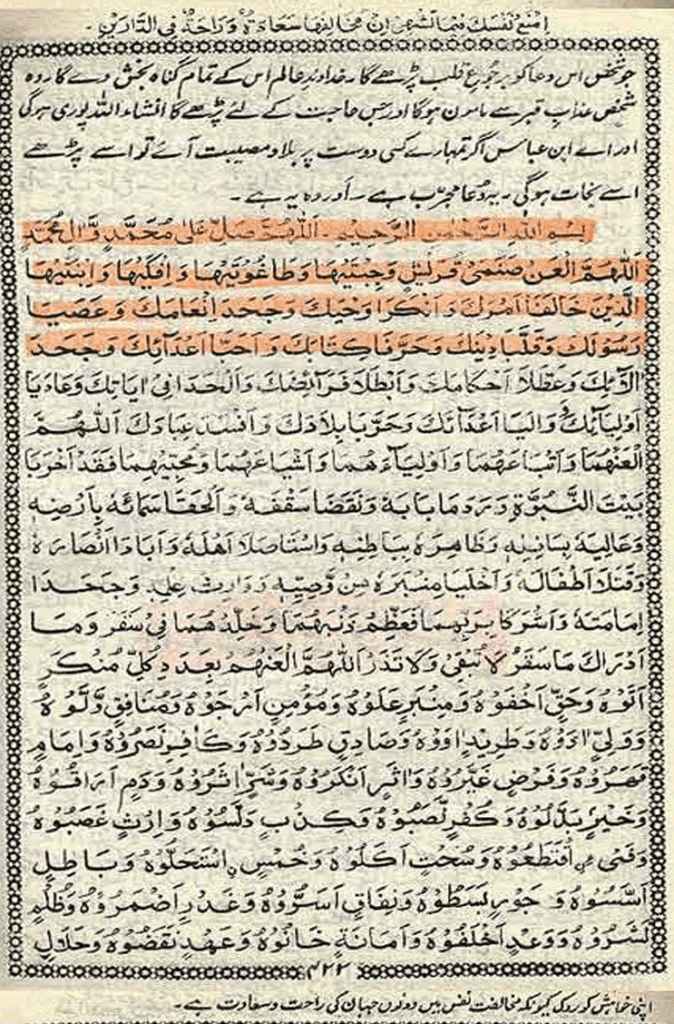 اِمْنَعْ نَفْسَكَ فِيمَا تَشْتَهِي اِنَّ مُخَالِفَتَهَا سَعَادَةٌ وَرَاحَةٌ فِي الدَّارَيْنِ۔
جو شخص اس دعا کو برجوع قلب پڑھے گا۔ خداوند عالم اس کے تمام گناہ بخش دے گا۔ وہ
شخص عذاب قبر سے مامون ہوگا اور جس حاجت کے لئے پڑھے گا انشاء اللہ پوری ہوگی
اور اے ابن عباس اگر تمہارے کسی دوست پر بلا و مصیبت آئے تو اسے پڑھے
اسے نجات ہوگی۔ یہ دعا مجرّب ہے۔ اور وہ یہ ہے۔
بِسْمِ اللهِ الرَّحْمٰنِ الرَّحِيْمِ۔ اَللّٰهُمَّ صَلِّ عَلٰى مُحَمَّدٍ وَّاٰلِ مُحَمَّدٍ
اَللّٰهُمَّ الْعَنْ صَنَمَيْ قُرَيْشٍ وَجِبْتَيْهَا وَطَاغُوْتَيْهَا وَاِفْكَيْهَا وَابْنَتَيْهَا
الَّذِيْنَ خَالَفَا اَمْرَكَ وَاَنْكَرَا وَحْيَكَ وَجَحَدَا اِنْعَامَكَ وَعَصَيَا
رَسُوْلَكَ وَقَلَّبَا دِيْنَكَ وَحَرَّفَا كِتَابَكَ وَاَحَبَّا اَعْدَآئَكَ وَجَحَدَا
اٰلَآئَكَ وَعَطَّلَا اَحْكَامَكَ وَاَبْطَلَا فَرَآئِضَكَ وَاَلْحَدَا فِيْ اٰيَاتِكَ وَعَادَيَا
اَوْلِيَآئَكَ وَوَالَيَا اَعْدَآئَكَ وَخَرَّبَا بِلَادَكَ وَاَفْسَدَا عِبَادَكَ اَللّٰهُمَّ
الْعَنْهُمَا وَاَتْبَاعَهُمَا وَاَوْلِيَآءَهُمَا وَاَشْيَاعَهُمَا وَمُحِبِّيْهِمَا فَقَدْ اَخْرَبَا
بَيْتَ النُّبُوَّةِ وَرَدَمَا بَابَهٗ وَنَقَضَا سَقْفَهٗ وَاَلْحَقَا سَمَآئَهٗ بِاَرْضِهٖ
وَعَالِيَهٗ بِسَافِلِهٖ وَظَاهِرَهٗ بِبَاطِنِهٖ وَاسْتَاصَلَا اَهْلَهٗ وَاَبَادَا اَنْصَارَهٗ
وَقَتَلَا اَطْفَالَهٗ وَاَخْلَيَا مِنْبَرَهٗ مِنْ وَّصِيِّهٖ وَوَارِثِ عِلْمِهٖ وَجَحَدَا
اِمَامَتَهٗ وَاَشْرَكَا بِرَبِّهِمَا فَعَظِّمْ ذَنْبَهُمَا وَخَلِّدْهُمَا فِيْ سَقَرَ وَمَا
اَدْرَاكَ مَا سَقَرُ لَا تُبْقِيْ وَلَا تَذَرُ اَللّٰهُمَّ الْعَنْهُمْ بِعَدَدِ كُلِّ مُنْكَرٍ
اَتَوْهُ وَحَقٍّ اَخْفَوْهُ وَمِنْبَرٍ عَلَوْهُ وَمُؤْمِنٍ اَرْجَوْهُ وَمُنَافِقٍ وَّلَّوْهُ
وَوَلِيٍّ اٰذَوْهُ وَطَرِيْدٍ اٰوَوْهُ وَصَادِقٍ طَرَدُوْهُ وَكَافِرٍ نَصَرُوْهُ وَاِمَامٍ
قَهَرُوْهُ وَفَرْضٍ غَيَّرُوْهُ وَاَثَرٍ اَنْكَرُوْهُ وَشَرٍّ اٰثَرُوْهُ وَدَمٍ اَرَاقُوْهُ
وَخَيْرٍ بَدَّلُوْهُ وَكُفْرٍ نَصَبُوْهُ وَكِذْبٍ دَلَّسُوْهُ وَاِرْثٍ غَصَبُوْهُ
وَفَيْءٍ نِ اقْتَطَعُوْهُ وَسُحْتٍ اَكَلُوْهُ وَخُمْسٍ نِ اسْتَحَلُّوْهُ وَبَاطِلٍ
اَسَّسُوْهُ وَجَوْرٍ بَسَطُوْهُ وَنِفَاقٍ اَسَرُّوْهُ وَغَدْرٍ اَضْمَرُوْهُ وَظُلْمٍ
نَشَرُوْهُ وَوَعْدٍ اَخْلَفُوْهُ وَاَمَانَةٍ خَانُوْهُ وَعَهْدٍ نَقَضُوْهُ وَحَلَالٍ
۴۲۲
اپنی خواہش کو روک کیونکہ مخالفت نفس میں دونوں جہان کی راحت و سعادت ہے۔